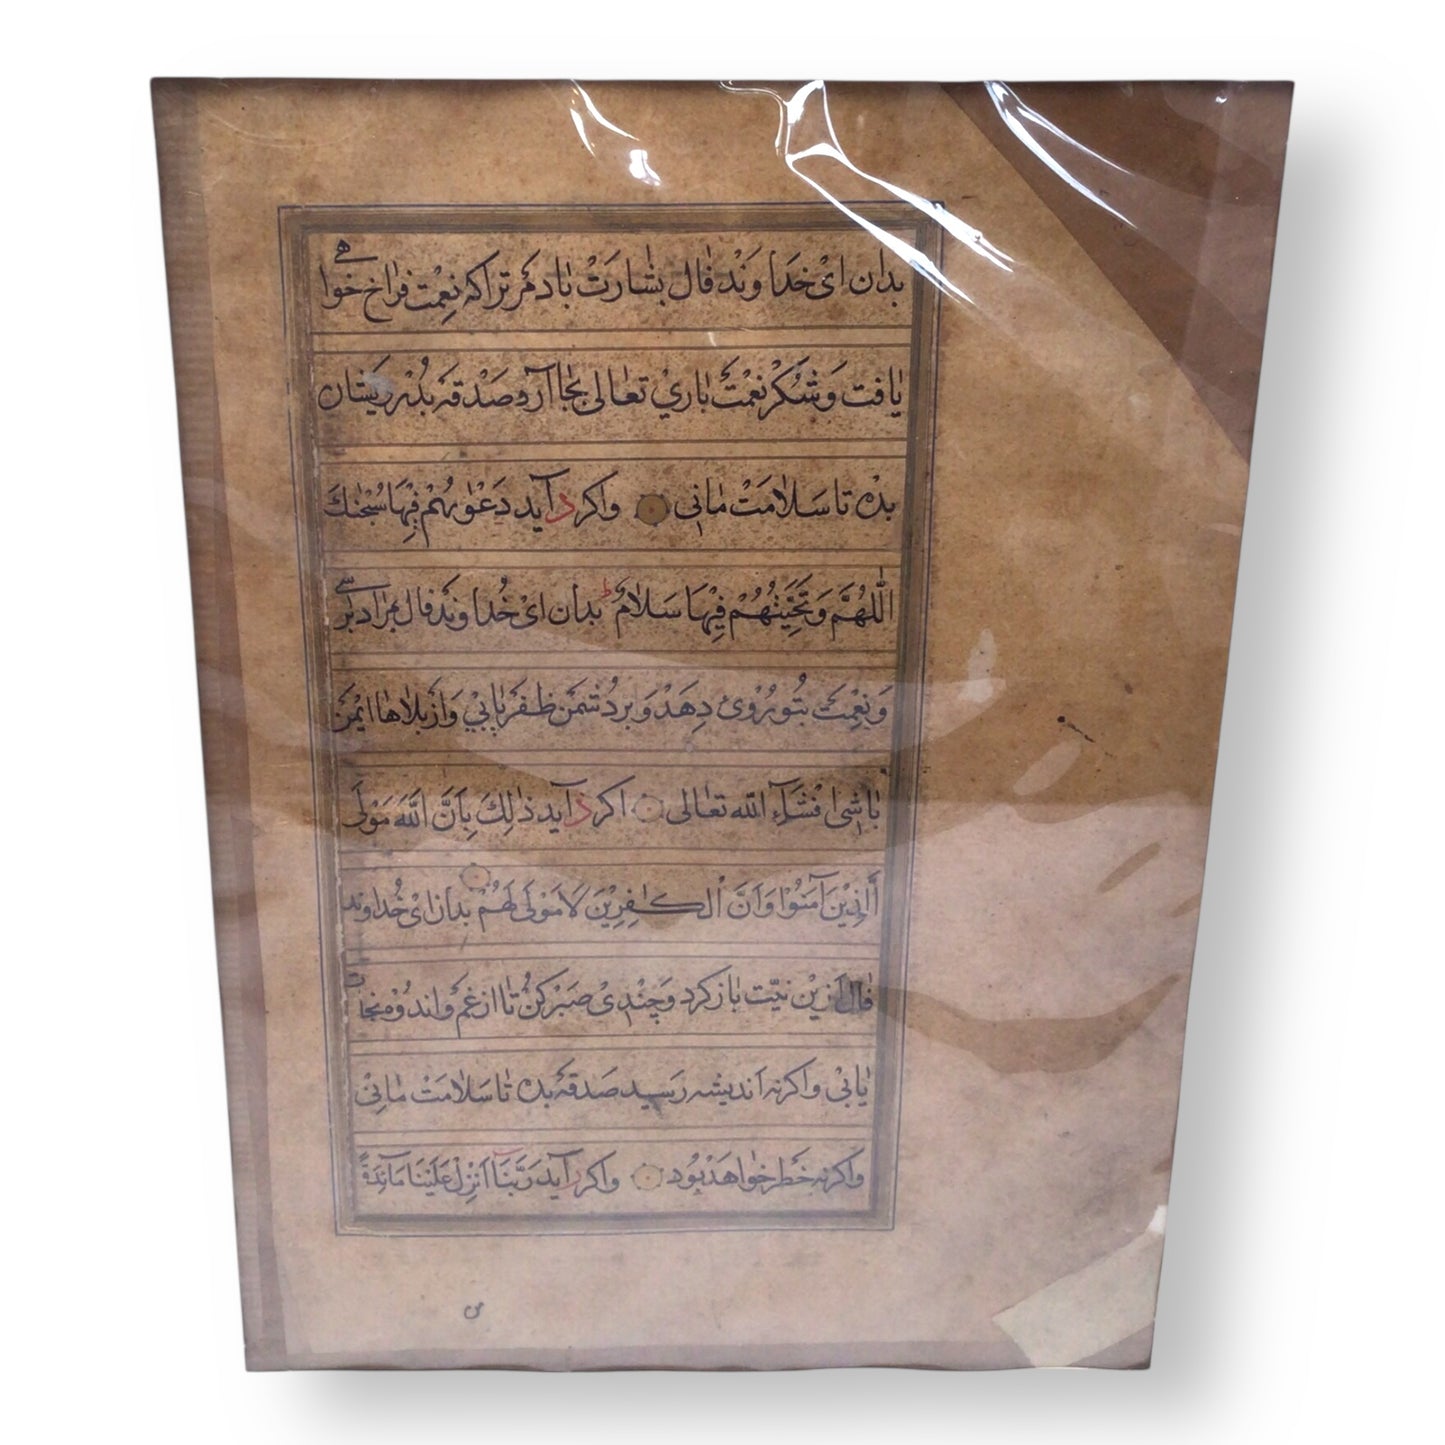 بدان اىْ خداوَنْد فال بشارَتْ بادمَر تراکه نِعمت فراخ خواهے
یافت وَشُکْر نِعْمتْ باریْ تعالی بجاآر و صَدْقه بدُرْویشان
بدْه تا سَلامَتْ مانی واکر د آید دَعْوٰىهُمْ فِيْهَا سُبْحٰنَكَ
اللّٰهُمَّ وَتَحِيَّتُهُمْ فِيْهَا سَلَامٌ ط بدان اىْ خُداوَند فال بمراد برسے
وَنِعْمَت بتُو رُوْی دِهَدْ وَبردُشمَن ظفَر یابيْ وَازبَلاها ایْمَن
باشی انْشآء الله تعالی اکر ذ آید ذٰلِكَ بِاَنَّ اللّٰهَ مَوْلَى
الَّذِيْنَ آمَنُوْا وَاَنَّ الْكَافِرِيْنَ لَامَوْلَى لَهُمْ بدان اىْ خُداوند
فال اَزیْن نیّت باز کرد وَچَنْدِیْ صَبْر کنْ تا ازغم و اندوْه نجات
یابیْ واکرنه اَندیشه رَسید صَدقه بدْه تا سَلامَتْ مانیْ
واکرنه خَطر خواهَدْبُود واکر ر آید رَبَّنَآ اَنْزِلْ عَلَيْنَا مَآئِدَةً